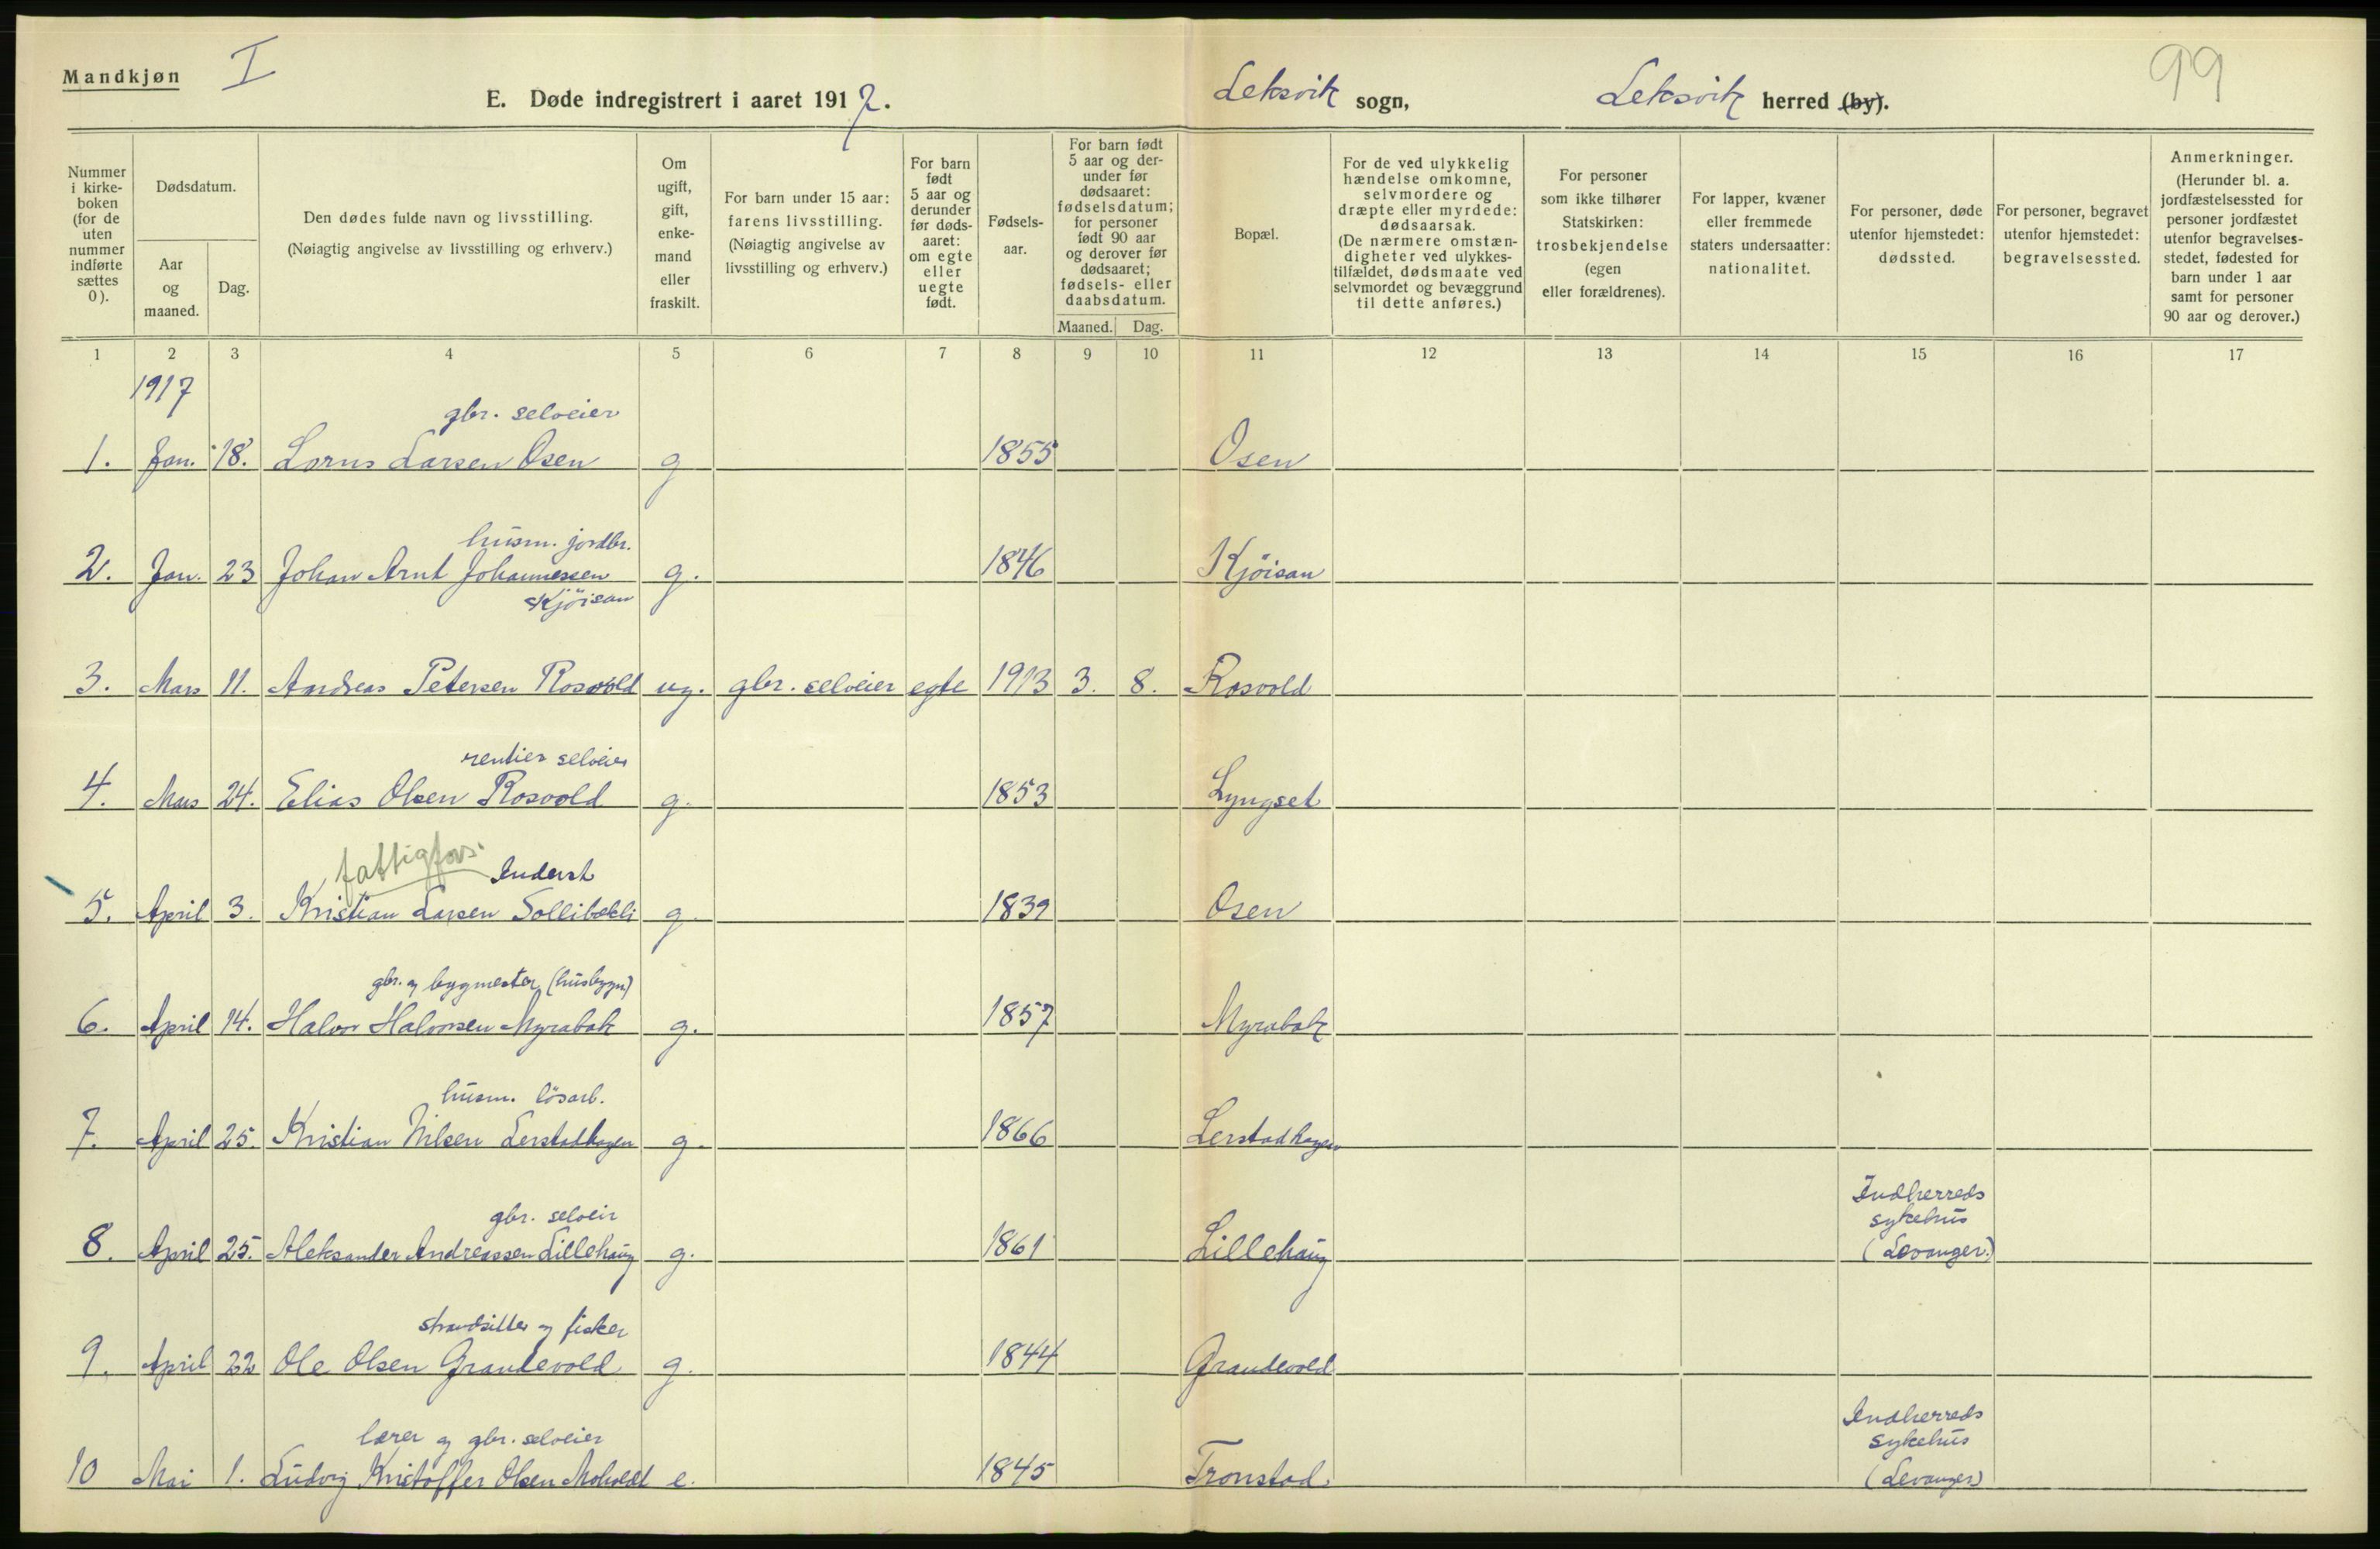 Mandkjøn I
E. Døde indregistrert i aaret 1917. Leksvik sogn, Leksvik herred (by). 99
Nummer i kirkeboken (for de uten nummer indførte sættes 0).
Dødsdatum.
Aar og maaned.
Dag.
Den dødes fulde navn og livsstilling.
(Nøiagtig angivelse av livsstilling og erhverv.)
Om ugift, gift, enkemand eller fraskilt.
For barn under 15 aar: farens livsstilling. (Nøiagtig angivelse av livsstilling og erhverv.)
For barn født 5 aar og derunder før dødsaaret: om egte eller uegte født.
Fødselsaar.
For barn født 5 aar og derunder før dødsaaret: fødselsdatum; for personer født 90 aar og derover før dødsaaret; fødsels- eller daabsdatum.
Maaned. Dag.
Bopæl.
For de ved ulykkelig hændelse omkomne, selvmordere og dræpte eller myrdede: dødsaarsak. (De nærmere omstændigheter ved ulykkestilfældet, dødsmaate ved selvmordet og bevæggrund til dette anføres.)
For personer som ikke tilhører Statskirken: trosbekjendelse (egen eller forældrenes).
For lapper, kvæner eller fremmede staters undersaatter: nationalitet.
For personer, døde utenfor hjemstedet: dødssted.
For personer, begravet utenfor hjemstedet: begravelsessted.
Anmerkninger. (Herunder bl. a. jordfæstelsessted for personer jordfæstet utenfor begravelsesstedet, fødested for barn under 1 aar samt for personer 90 aar og derover.)
1 2 3 4 5 6 7 8 9 10 11 12 13 14 15 16 17
1917
gbr. selveier
1. Jan. 18. Lorns Larsen Osen g 1855 Osen
husm. jordbr.
2. Jan. 23 Johan Arnt Johannessen g. 1846 Kjöisan
Kjöisan
3. Mars 11. Andreas Petersen Rosvold ug. gbr. selveier egte 1913 3. 8. Rosvold
rentier selveier
4. Mars 24. Elias Olsen Rosvold g. 1853 Lyngset
fattigfors. Inderst
5. April 3. Kristian Larsen Sollibakli g. 1839 Osen
gbr. og bygmester (husbygn)
6. April 14. Halvor Halvorsen Myrabak g. 1857 Myrabak
husm. lösarb.
7. April 25. Kristian Nilsen Lerstadhagen g. 1866 Lerstadhagen
gbr. selveir Indherreds sykehus
8. April 25. Aleksander Andreassen Lillehaug g. 1861 Lillehaug (Levanger.)
strandsitter og fisker
9. April 22 Ole Olsen Grandevold g. 1844 Grandevold
lærer og gbr. selveier Indherreds sykehus
10 Mai 1. Ludvig Kristoffer Olsen Moholdt e. 1845 Tronstad (Levanger)